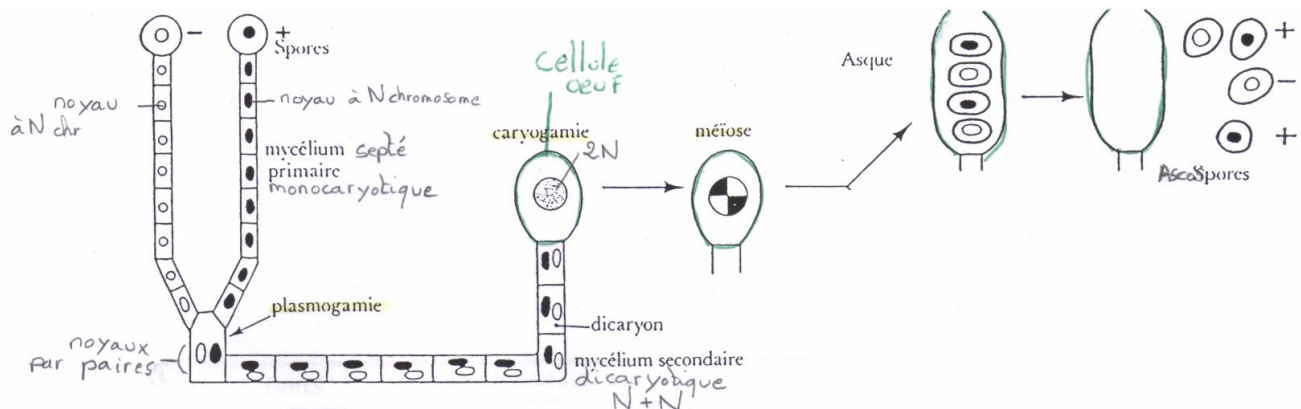 -
+
Spores
noyau
à N chr
noyau à N chromosome
mycélium septé
primaire
monocaryotique
plasmogamie
noyaux
par paires
Cellule
oeuf
caryogamie
2N
dicaryon
mycélium secondaire
dicaryotique
N + N
méïose
Asque
+
-
+
AscoSpores